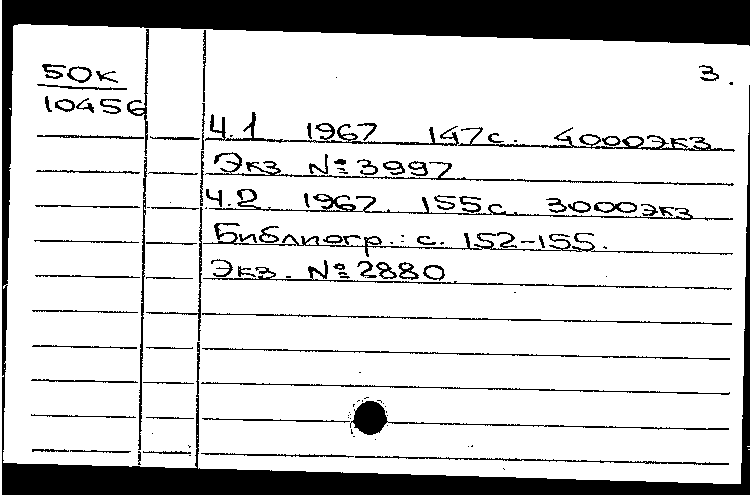 50к
10456
3.
Ч.1 1967 147с. 4000экз.
Экз №3997.
Ч.2. 1967. 155с. 3000экз
Библиогр.: с. 152-155.
Экз. №2880